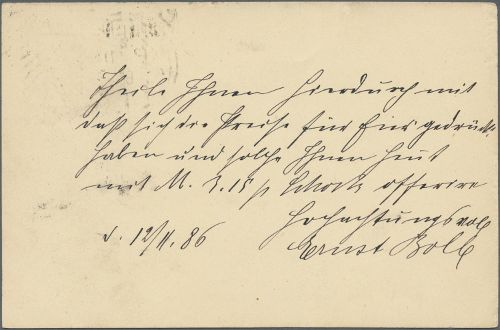 Theile Ihnen hierdurch mit
daß sich die Preise für Eier gedrückt
haben und solche Ihnen heut
mit M. 2.15 p Schock offerire
Hochachtungsvoll
d. 12/11. 86
Ernst Boll